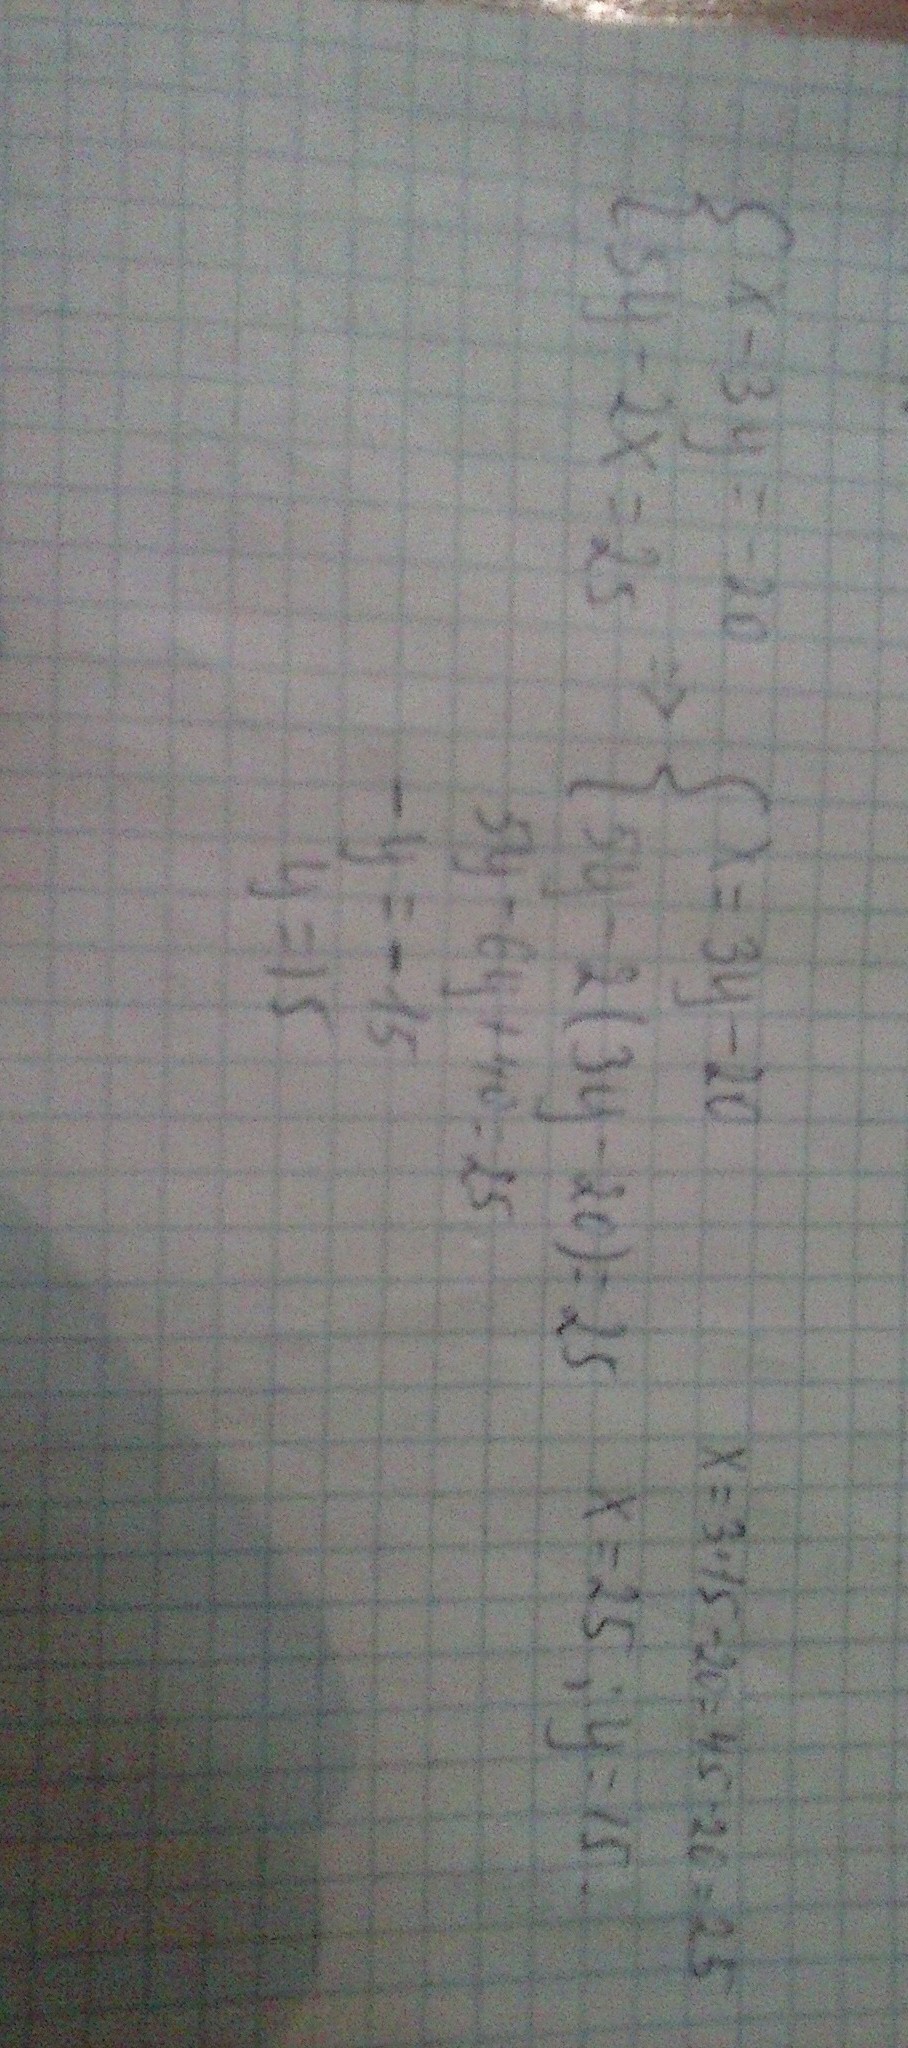 { x - 3y = -20
{ 5y - 2x = 25 ⇒
{ x = 3y - 20
{ 5y - 2(3y - 20) = 25
5y - 6y + 40 = 25
-y = -15
y = 15
x = 3·15 - 20 = 45 - 20 = 25
x = 25; y = 15.